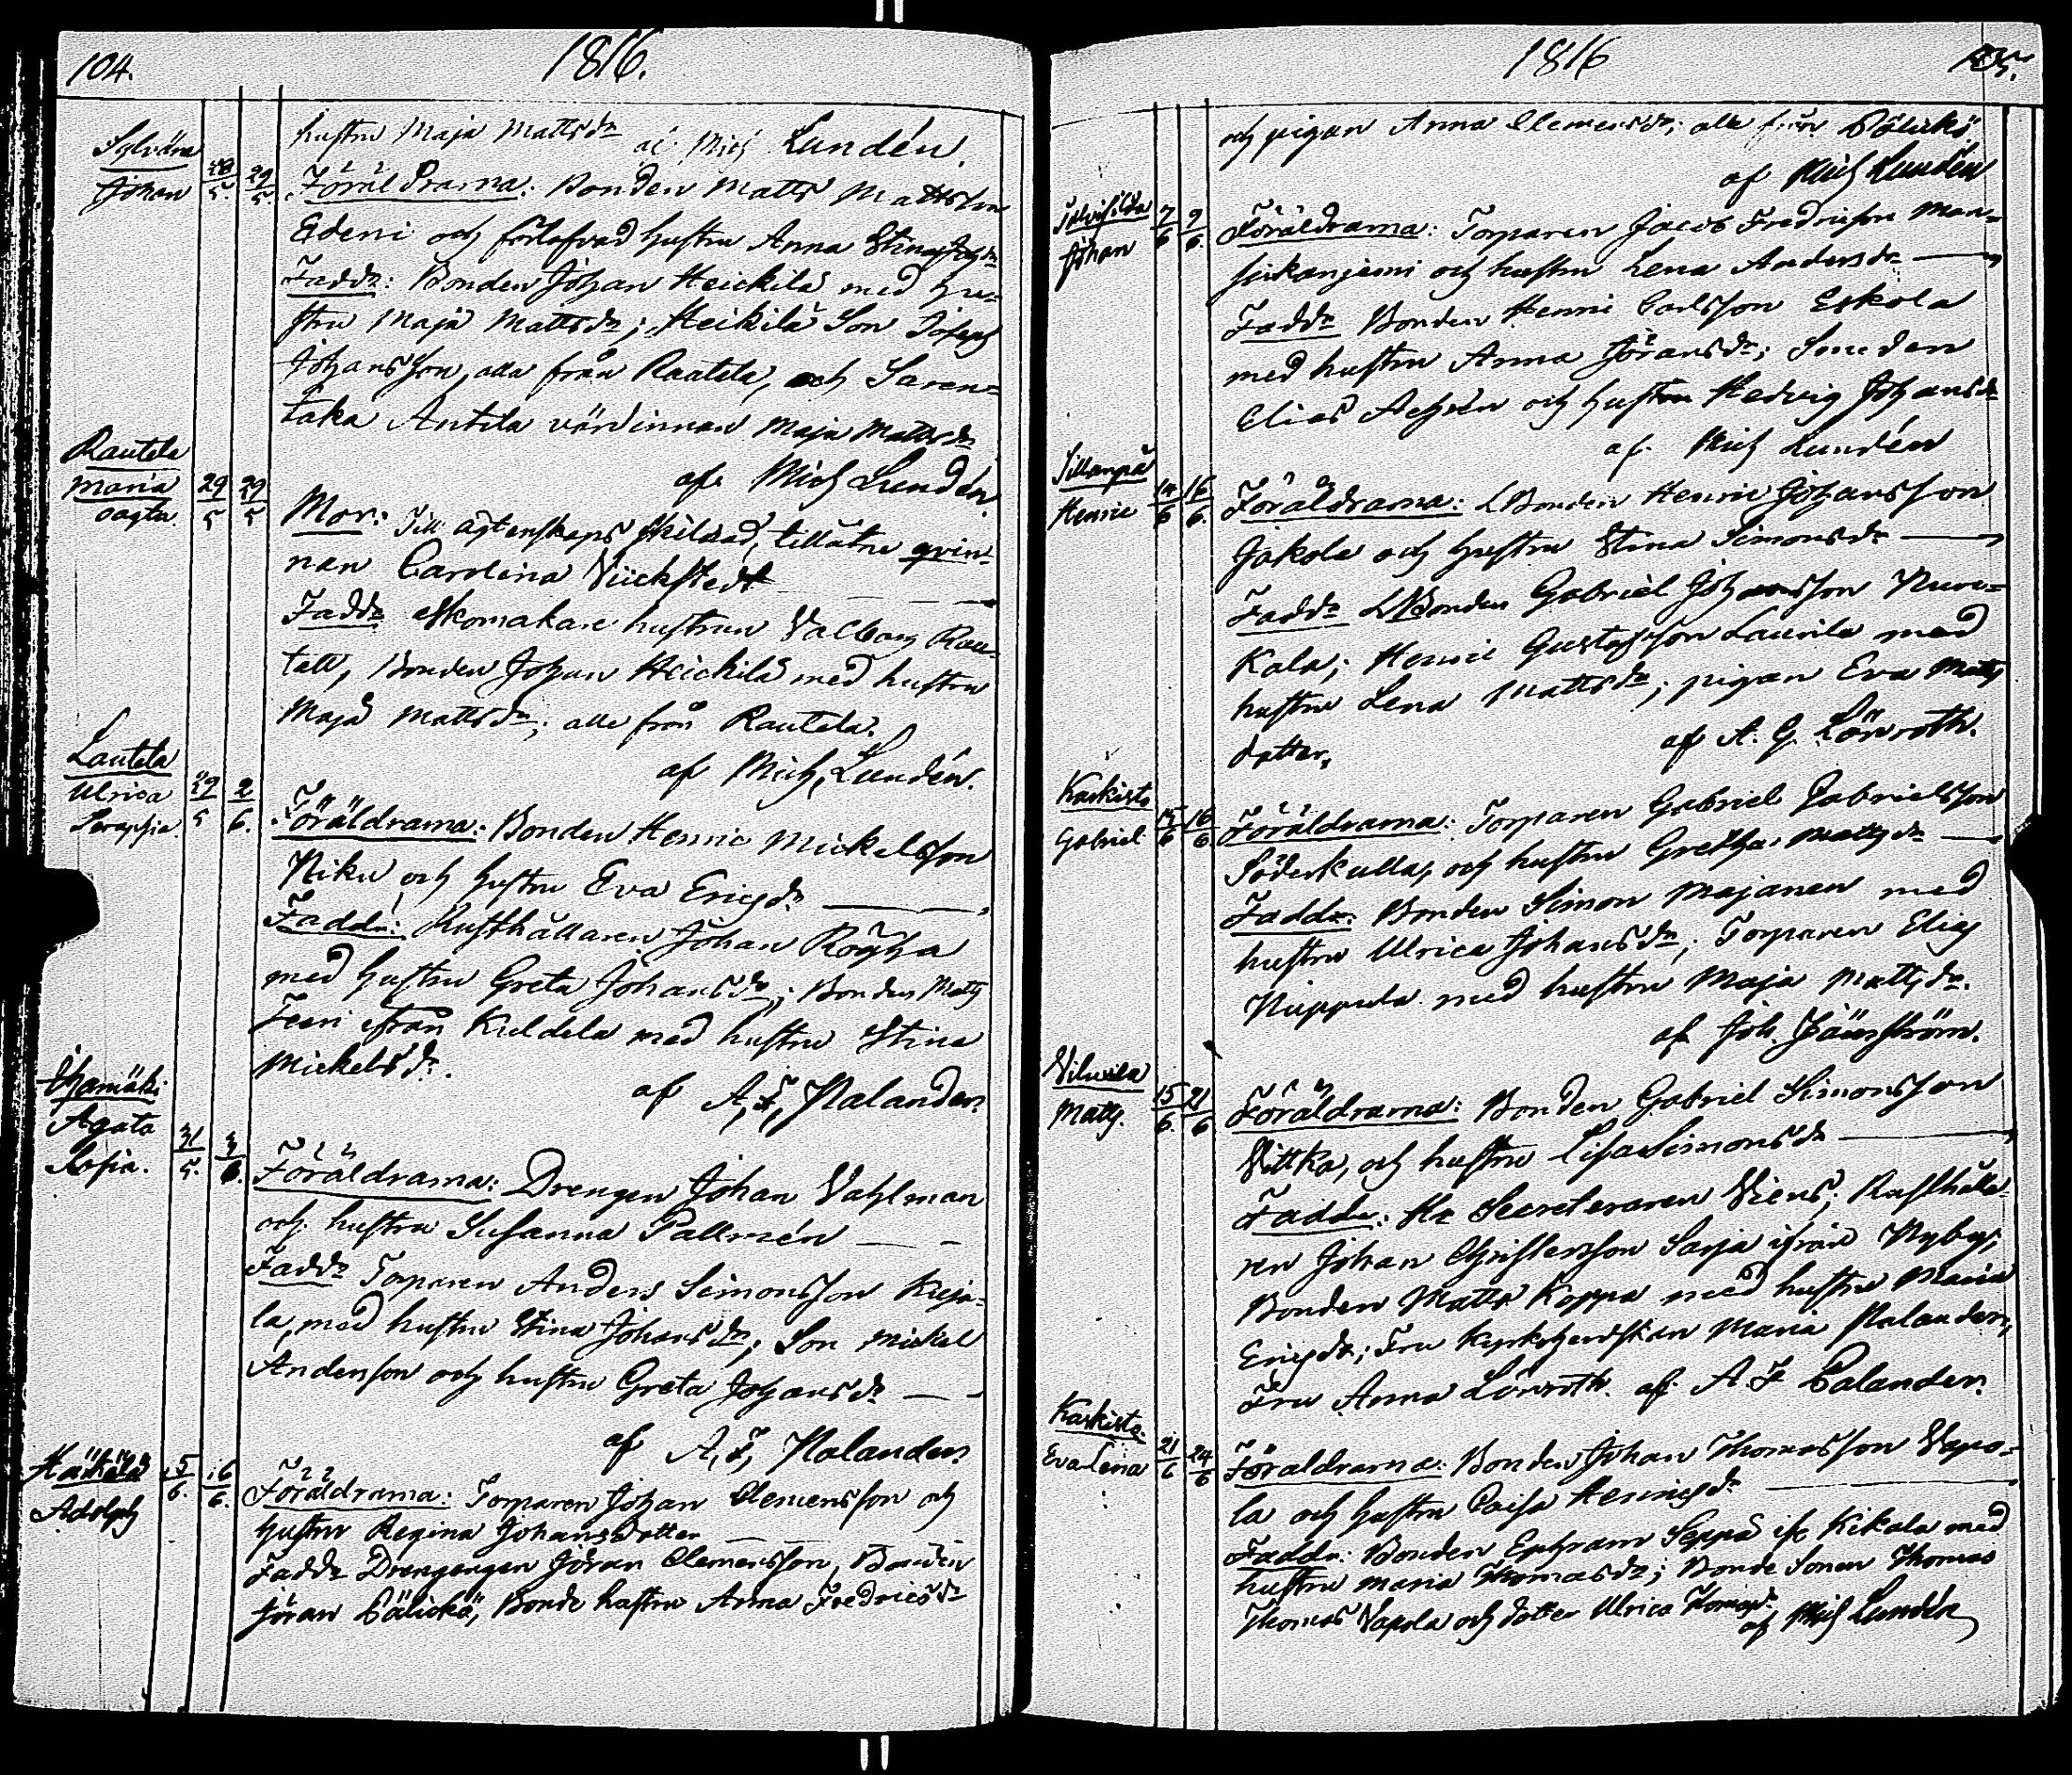 104.
1816.
hustru Maja Mattsdr af Mich Lundén.
Sylvän
Johan
28/5. 29/5.
Föräldrarna: Bonden Matts Mattsson
Edeni och förlofvad hustru Anna Stina Joh dr
Faddr: Bonden Johan Heickilä med hu-
stru Maja Mattsdr; Heikilä Son Joseph
Johansson, alla från Rautela, och Saren-
taka Antila värdinnan Maja Mattsdr
af Mich Lundén.
Rautela
Maria
oägta.
29/5 29/5
Mor: Till ägtenskaps skillnad tillåtne qvin-
nan Carolina Vückstedt
Faddr Skomakare hustrun Valborg Rau-
tell, Bonden Johan Heickilä med hustru
Maja Mattsdr; alla från Rautela.
af Mich, Lundén.
Lautela
Ulrica
Seraphia
29/5 2/6.
Föräldrarna: Bonden Henric Mickelsson
Niku och hustru Eva Ericsdr
Faddr: Rusthållaren Johan Röyhä
med hustru Greta Johansdr; Bonden Matts
från Kuldela med hustru Stina
Mickelsdr.
af A, F, Palander.
Agata
Sofia.
31/5. 3/6.
Föräldrarna: Drengen Johan Vahlman
och hustru Susanna Pallmén
Faddr Torparen Anders Simonsson Kieja-
la, med hustru Stina Johansdr; Son Mickel
Andersson och hustru Greta Johansdr
af A, F, Palander.
Häikälä
Adolph
5/6. 16/6.
Föräldrarna: Torparen Johan Clemensson och
hustru Regina Johansdotter
Faddr Drengengen Jöran Clemensson, Bonden
Jöran Pälickö, Bonde hustru Anna Fredricsdr
1816
105.
och pigan Anna Clemensdr; alla från Pälickö
af Mich Lundén
Johan
7/6 9/6.
Föräldrarna: Torparen Jacob Fredricsson Man-
sikanjemi och hustru Lena Andersdr
Faddr Bonden Henric Carlsson Eskola
med hustru Anna Jöransdr; Smeden
Elias Achrén och hustru Hedvig Johansdr
af Mich Lundén
Sillanpä
Henric
14/6 16/6.
Föräldrarna: LBonden Henric Johansson
Jakola och hustru Stina Simonsdr
Faddr LBonden Gabriel Johansson Nuro-
kala; Henric Gustafsson Laurila med
hustru Lena Mattsdr; pigan Eva Matts
dotter,
af A. G. Lönroth.
Karkisto
Gabriel
15/6 16/6.
Föräldrarna: Torparen Gabriel Gabrielsson
Söderkulla, och hustru Gretha Mattsdr
Faddr. Bonden Simon Majanen med
hustru Ulrica Johansdr; Torparen Elias
Nuppula med hustru Maja Mattsdr.
af Joh.
Viluxela
Matts.
15/6. 21/6
Föräldrarna: Bonden Gabriel Simonsson
Vittka, och hustru Lisa Simonsdr
Faddr: Hr Secreteraren Viens; Rusthålla-
ren Johan Christersson Sarja ifrån Nyby;
Bonden Matts Koppa med hustru Maria
Ericsdr; Fru Kyrkoherdskan Maria Palander,
Fru Anna Lönroth. af A. F Palander.
Karkisto.
Eva Lena
21/6 24/6
Föräldrarna: Bonden Johan Thomasson Vapo-
la och hustru Caisa Henricsdr
Faddr: Bonden Ephram Seppä ifr Kikala med
hustru Maria Thomasdr; Bonde Sonen Thomas
Thomas Vapola och dotter Ulrica Thomasdr.
af Mich Lundén